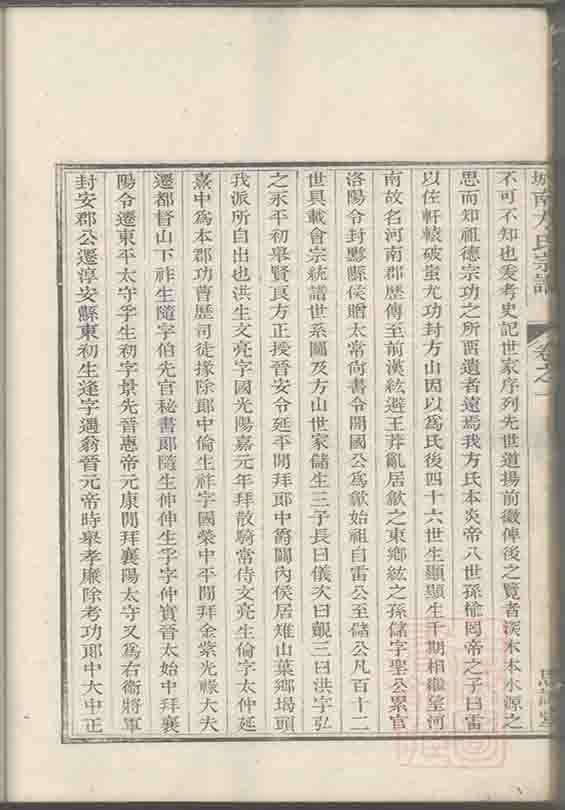 城南方氏宗譜
卷之一
不可不知也爰考史記世家序列先世道揚前徽俾後之覽者深木本水源之
思而知祖德宗功之所畱遺者遠焉我方氏本炎帝八世孫榆罔帝之子曰雷
以佐軒轅破蚩尤功封方山因以爲氏後四十六世生顯顯生千期相繼望河
南故名河南郡歷傳至前漢紘避王莽亂居歙之東鄉紘之孫儲字聖公累官
洛陽令封黟縣侯贈太常尚書令開國公爲歙始祖自雷公至儲公凡百十二
世具載會宗統譜世系圖及方山世家儲生三子長曰儀次曰觀三曰洪字弘
之永平初舉賢良方正授晉安令延平閒拜郎中爵關內侯居雉山葉鄉堨頭
我派所自出也洪生文亮字國光陽嘉元年拜散騎常侍文亮生倫字太仲延
熹中爲本郡功曹歷司徒掾除郎中倫生祚字國榮中平閒拜金紫光祿大夫
遷都督山下祚生隨字伯先官祕書郎隨生仲仲生孚字仲寶晉太始中拜襄
陽令遷東平太守孚生初字景先晉惠帝元康閒拜襄陽太守又爲右衞將軍
封安郡公遷淳安縣東初生逢字遇翁晉元帝時舉孝廉除考功郎中大中正